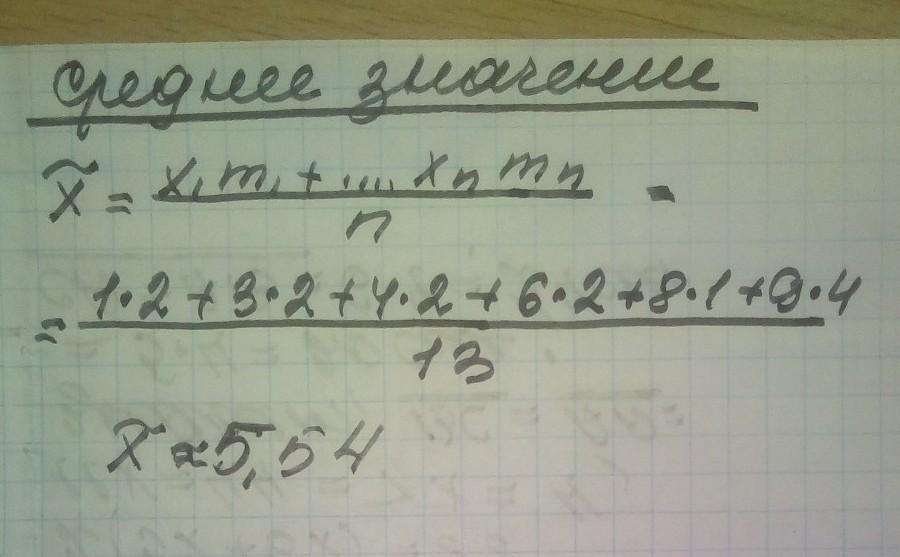 среднее значение
x̃ = (x₁m₁ + .... xₙ mₙ) / n =
= (1·2 + 3·2 + 4·2 + 6·2 + 8·1 + 9·4) / 13
x̃ ≈ 5,54